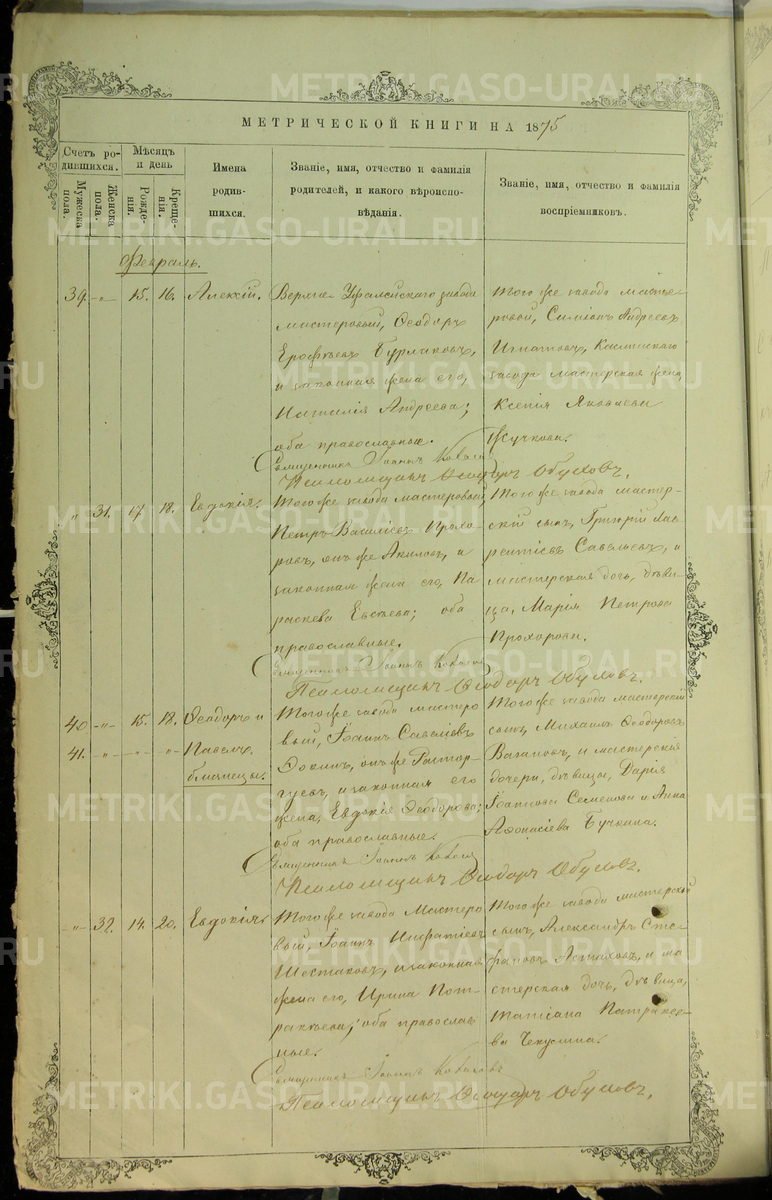 МЕТРИЧЕСКОЙ КНИГИ НА 1875
Счетъ ро-
дившихся.
Мужеска
пола.
Женска
пола.
Мѣсяцъ
и день
Рожде-
нія.
Креще-
нія.
Имена
родив-
шихся.
Званіе, имя, отчество и фамилія
родителей, и какого вѣроиспо-
вѣданія.
Званіе, имя, отчество и фамилія
воспріемниковъ.
Февраль.
39. -"- 15. 16. Алексій.
Верхне-Уфалейскаго завода
мастеровый, Ѳеодоръ
Ерофѣевъ Бурмаковъ,
и законная жена его,
Наталія Андреева;
оба православные.
Того же завода масте-
ровой, Симеонъ Андреевъ
Игнатовъ, Каслинскаго
завода мастерская жена,
Ксенія Яковлева
Священникъ Іоаннъ
Псаломщикъ Ѳеодоръ Обуховъ.
" 31. 17. 18. Евдокія.
Того же завода мастеровый,
Петръ Василіевъ Прохо-
ровъ, онъ же Акиловъ, и
законная жена его, Па
раскева Евсѣева; оба
православные.
Того же завода мастер-
скій сынъ, Григорій Лав-
рентіевъ Савельевъ, и
мастерская дочь, дѣви-
ца, Марія Петрова
Прохорова.
Священникъ Іоаннъ
Псаломщикъ Ѳеодоръ Обуховъ.
40 -"- 15. 18. Ѳеодоръ и
41. -"- -"- " Павелъ.
близнецы.
Того же завода мастеро
вый, Іоаннъ Савеліевъ
онъ же Растор-
гуевъ, и законная его
жена, Евдокія Ѳеодорова;
оба православные.
Того же завода мастерскій
сынъ, Михаилъ Ѳеодоровъ
Вагановъ, и мастерскія
дочери, дѣвицы, Дарія
Іоаннова Семенова и Анна
Аѳонасіева Бучкина.
Священникъ Іоаннъ
Псаломщикъ Ѳеодоръ Обуховъ.
-"- 32. 14. 20. Евдокія.
Того же завода Мастеро
вый, Іоаннъ Нифатіевъ
Шестаковъ, и законная
жена его, Ирина Пат-
ракѣева; оба православ
ные.
Того же завода мастерскій
сынъ, Александръ Сте-
фановъ Астаховъ, и ма-
стерская дочь, дѣвица,
Татіана Патракее-
ва Чекусина.
Священникъ Іоаннъ
Псаломщикъ Ѳеодоръ Обуховъ.
METRIKI.GASO-URAL.RU